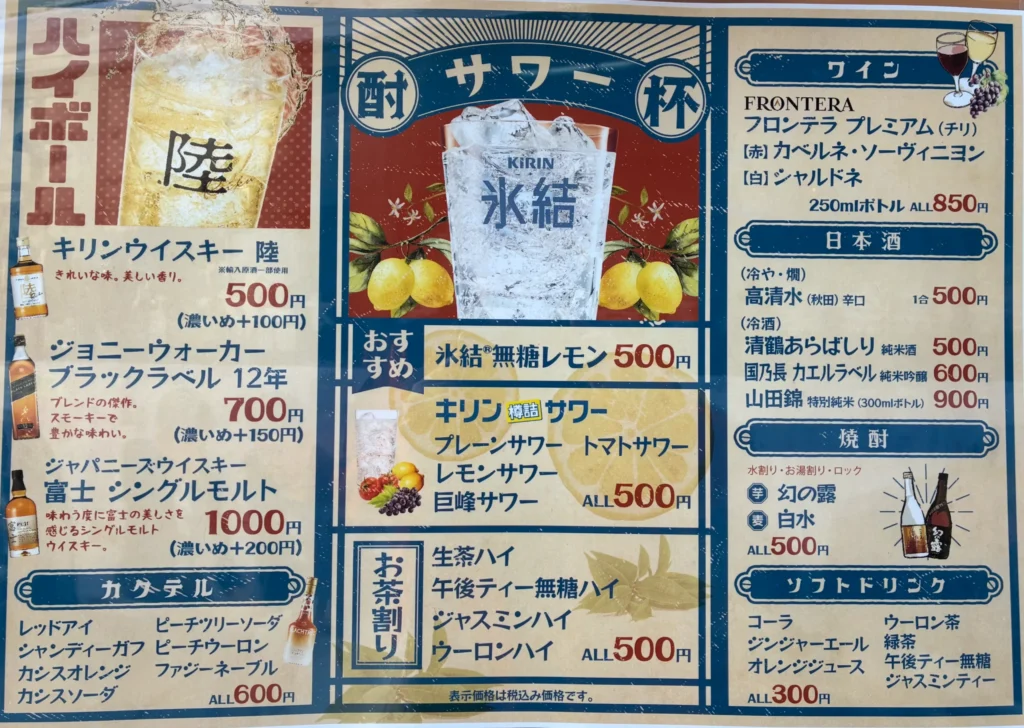 ハイボール
陸
キリンウイスキー 陸
※輸入原酒一部使用
きれいな味。美しい香り。
500円
(濃いめ+100円)
ジョニーウォーカー
ブラックラベル 12年
ブレンドの傑作。
スモーキーで
豊かな味わい。
700円
(濃いめ+150円)
ジャパニーズウイスキー
富士 シングルモルト
味わう度に富士の美しさを
感じるシングルモルト
ウイスキー。
1000円
(濃いめ+200円)
カクテル
レッドアイ
シャンディーガフ
カシスオレンジ
カシスソーダ
ピーチツリーソーダ
ピーチウーロン
ファジーネーブル
ALL600円
酎 サワー 杯
KIRIN
氷結
おすすめ
氷結®無糖レモン 500円
キリン 樽詰 サワー
プレーンサワー トマトサワー
レモンサワー
巨峰サワー
ALL500円
お茶割り
生茶ハイ
午後ティー無糖ハイ
ジャスミンハイ
ウーロンハイ
ALL500円
表示価格は税込み価格です。
ワイン
FRONTERA
フロンテラ プレミアム(チリ)
【赤】カベルネ・ソーヴィニヨン
【白】シャルドネ
250mlボトル ALL850円
日本酒
(冷や・燗)
高清水(秋田)辛口 1合 500円
(冷酒)
清鶴あらばしり 純米酒 500円
国乃長 カエルラベル 純米吟醸 600円
山田錦 特別純米(300mlボトル) 900円
焼酎
水割り・お湯割り・ロック
芋 幻の露
麦 白水
ALL500円
ソフトドリンク
コーラ
ジンジャーエール
オレンジジュース
ウーロン茶
緑茶
午後ティー無糖
ジャスミンティー
ALL300円